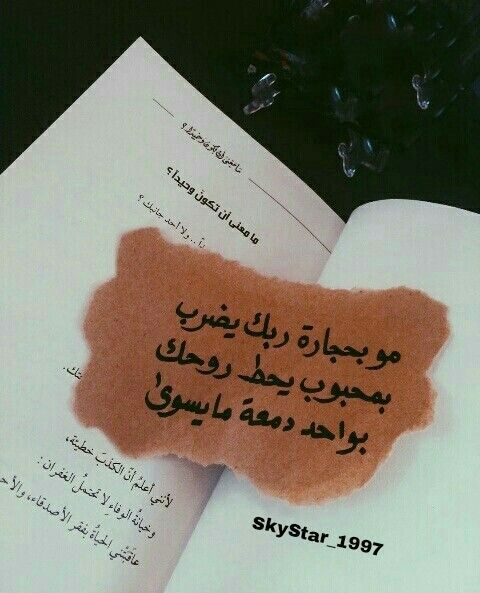 ما معنى أن تكون وحيداً؟
ما معنى أن تكون وحيداً؟
ولا أحد جانبك ؟
مو بحجارة ربك يضرب
بمحبوب يحط روحك
بواحد دمعة مايسوى
لأنني أعلمُ أنّ الكذبَ خطيئة،
وخيانةُ الوفاءِ لا تحتملُ الغفران :
عاقبتْني الحياةُ بفقر الأصدقاء،
SkyStar_1997